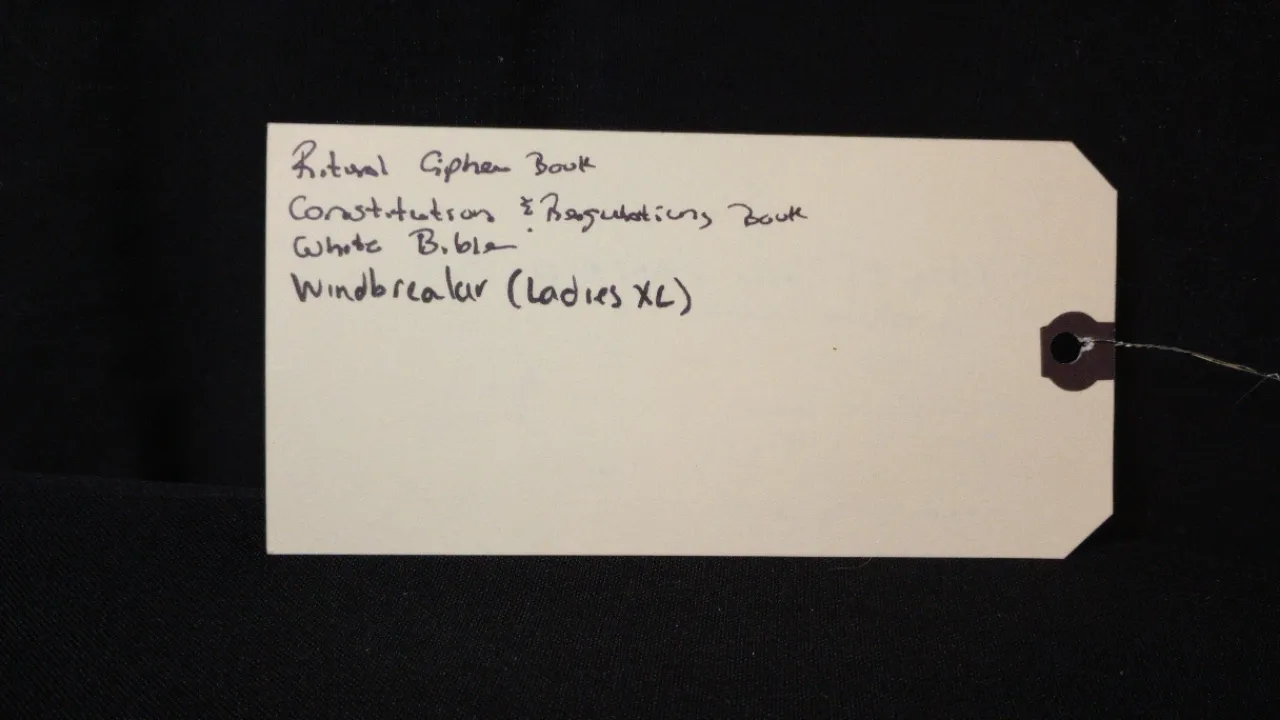 Ritual Cipher Book
Constitution & Regulations Book
White Bible
Windbreaker (Ladies XL)